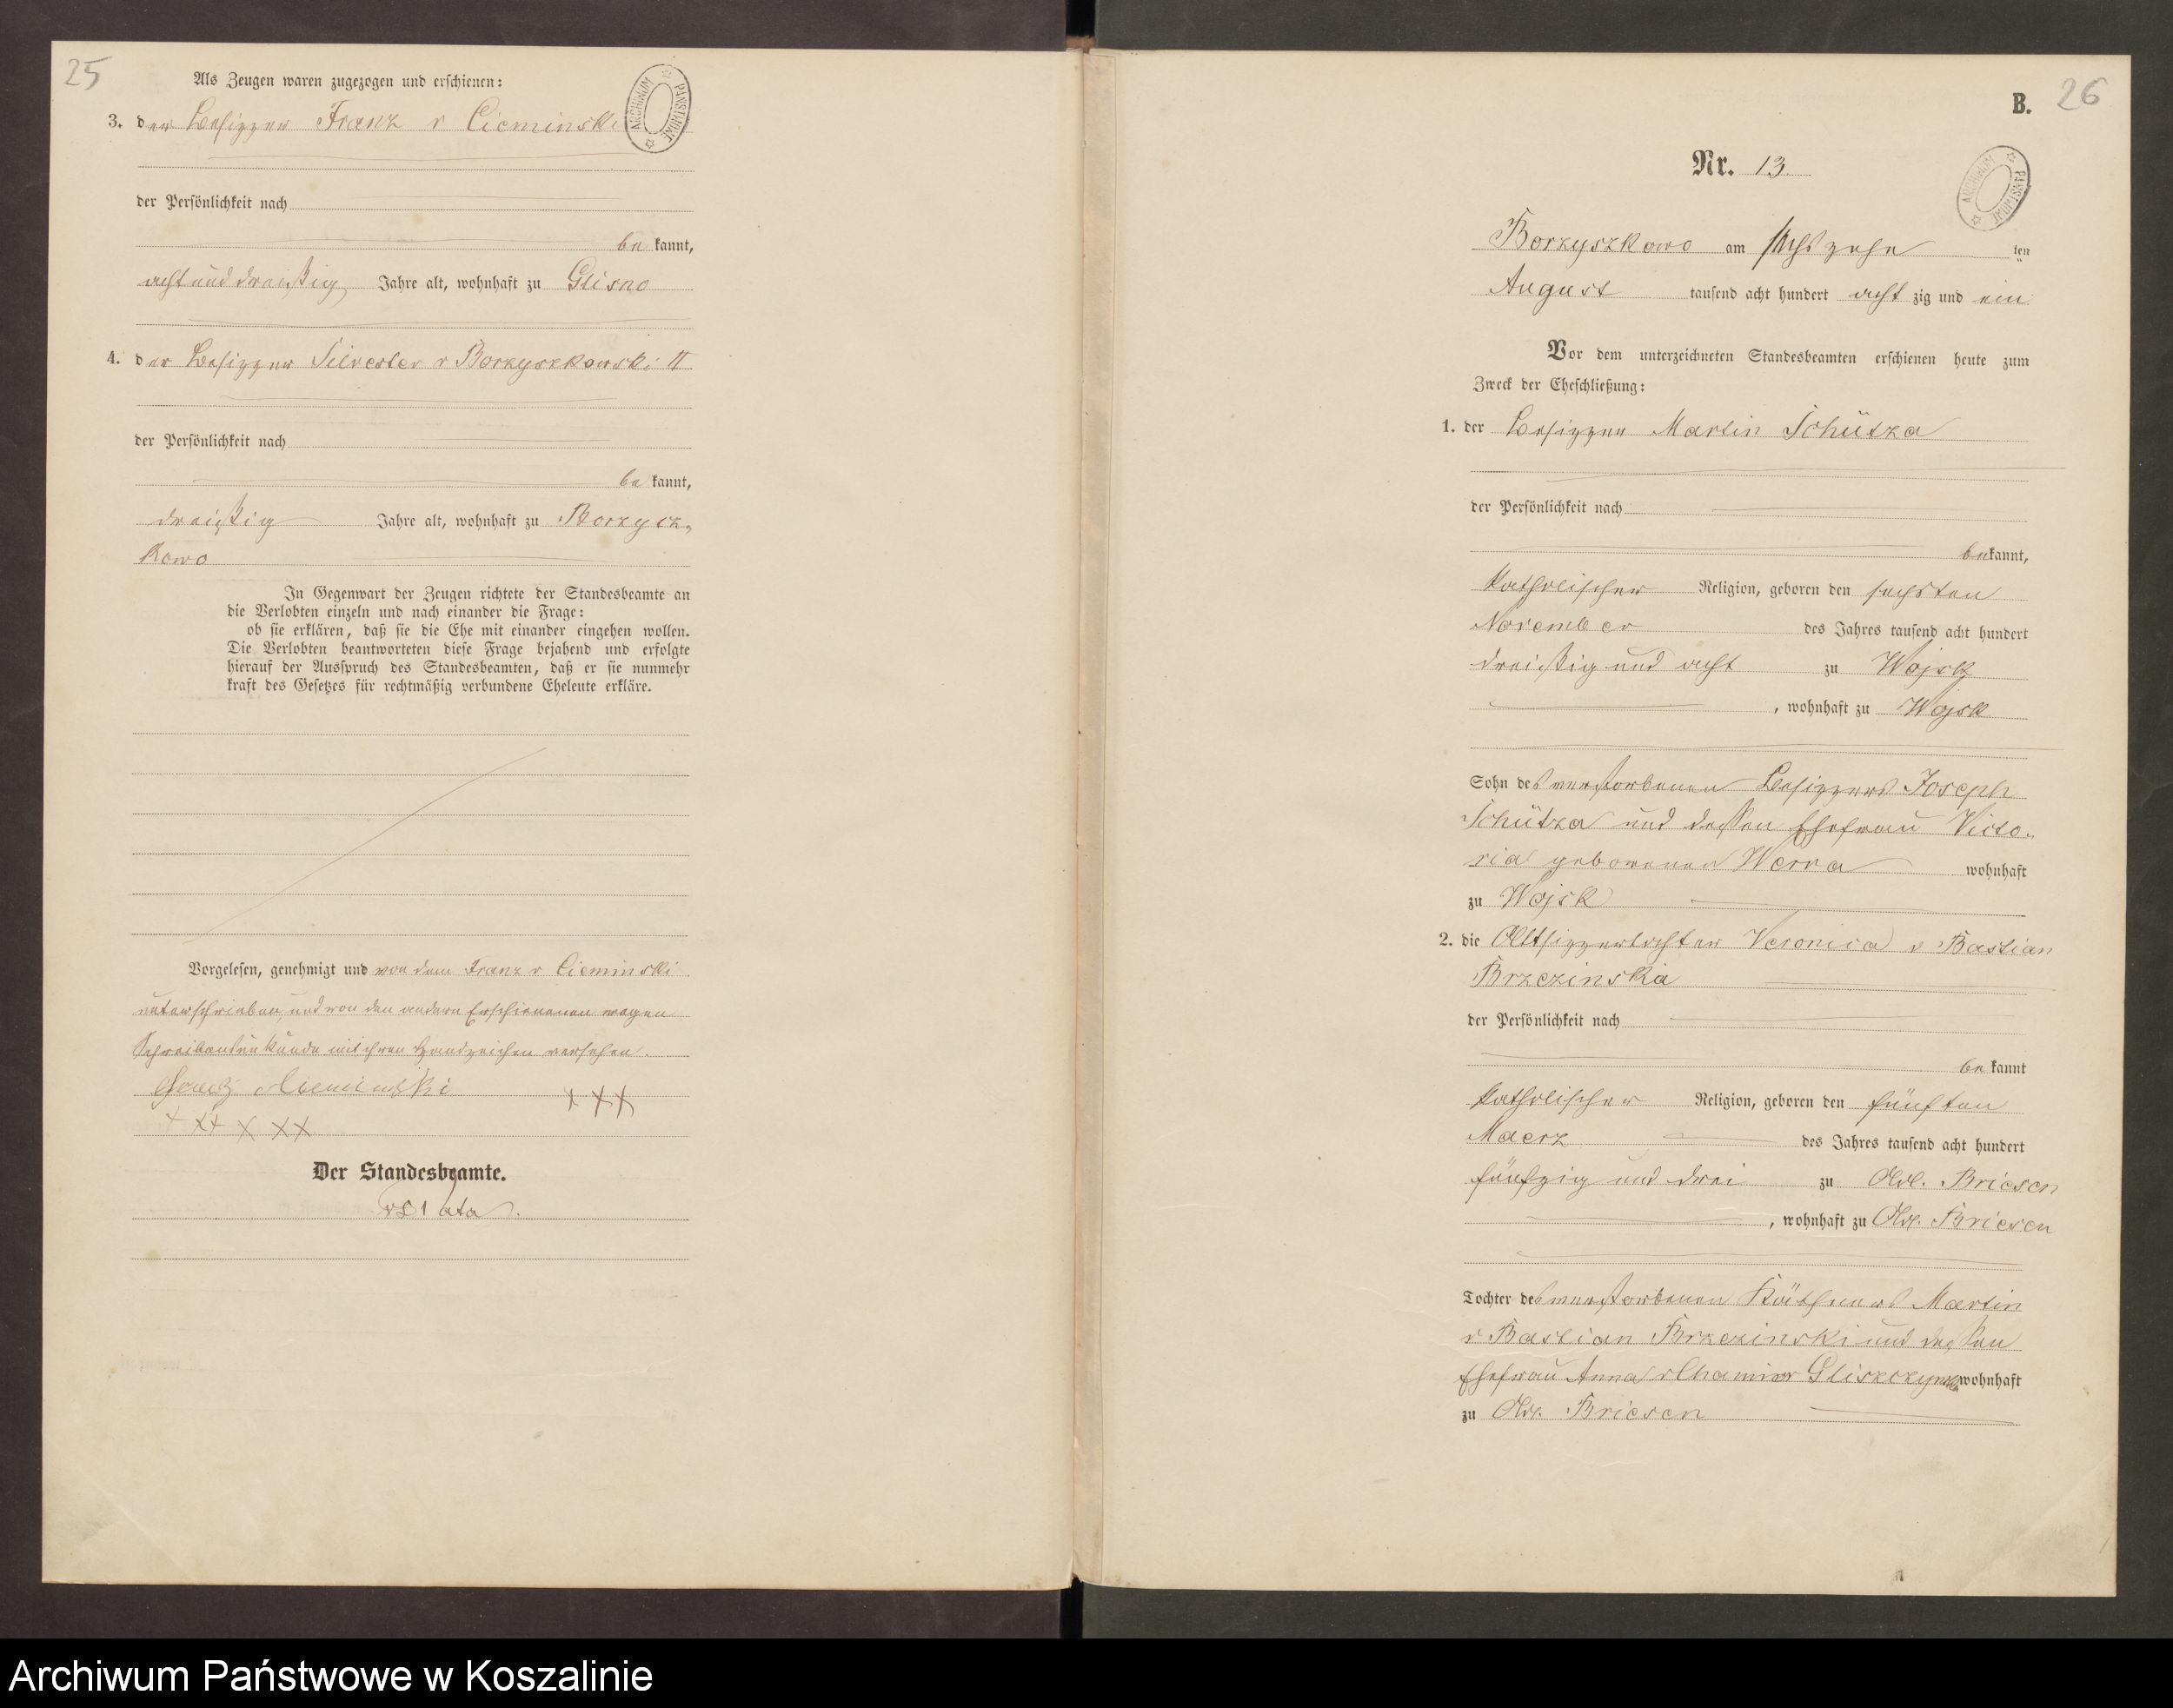 25
Als Zeugen waren zugezogen und erschienen:
ARCHIWUM PAŃSTWOWE
3. der Besitzer Franz v Cieminski
der Persönlichkeit nach
be kannt,
acht und dreißig Jahre alt, wohnhaft zu Glisno
4. der Besitzer Silvester v Borzyszkowski II
der Persönlichkeit nach
be kannt,
dreißig Jahre alt, wohnhaft zu Borzysz-
kowo
In Gegenwart der Zeugen richtete der Standesbeamte an
die Verlobten einzeln und nach einander die Frage:
ob sie erklären, daß sie die Ehe mit einander eingehen wollen.
Die Verlobten beantworteten diese Frage bejahend und erfolgte
hierauf der Ausspruch des Standesbeamten, daß er sie nunmehr
kraft des Gesetzes für rechtmäßig verbundene Eheleute erkläre.
Vorgelesen, genehmigt und von dem Franz v Cieminski
unterschrieben, und von den andern Erschienenen wegen
Schreibensunkunde mit ihren Handzeichen versehen.
Franz v Cieminski +++
+ ++ + ++
Der Standesbeamte.
B. 26
Nr. 13.
ARCHIWUM PAŃSTWOWE
Borzyszkowo am sechszehn ten
August tausend acht hundert acht zig und ein
Vor dem unterzeichneten Standesbeamten erschienen heute zum
Zweck der Eheschließung:
1. der Besitzer Martin Schütza
der Persönlichkeit nach
be kannt,
katholischer Religion, geboren den sechsten
November des Jahres tausend acht hundert
dreißig und acht zu Wojsk
, wohnhaft zu Wojsk
Sohn des verstorbenen Besitzers Joseph
Schütza und dessen Ehefrau Victo-
ria geborenen Werra wohnhaft
zu Wojsk
2. die Altsitzertochter Veronica v Bastian
Brzezinska
der Persönlichkeit nach
be kannt
katholischer Religion, geboren den fünften
Maerz des Jahres tausend acht hundert
fünfzig und drei zu Adl. Briesen
, wohnhaft zu Adl. Briesen
Tochter des verstorbenen Käthners Martin
v Bastian Brzezinski und dessen
Ehefrau Anna v Chamier Gliszczynska wohnhaft
zu Adl. Briesen
Archiwum Państwowe w Koszalinie